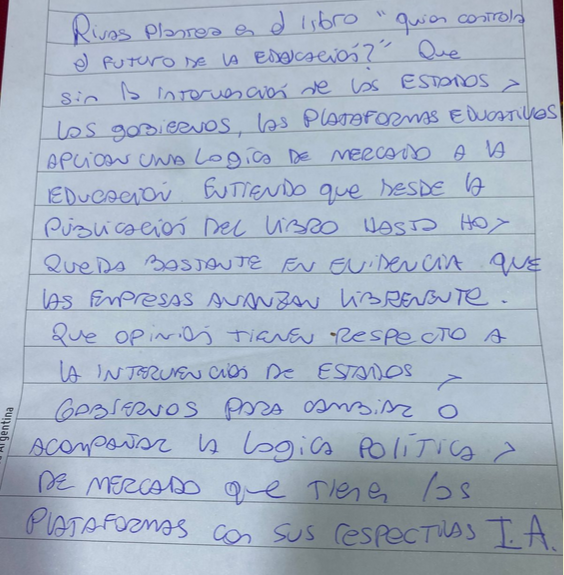 Rivas plantea en el libro "quien controla
el FUTURO DE LA EDUCACIÓN?" Que
sin la intervención de los ESTADOS y
los gobiernos, las PLATAFORMAS EDUCATIVAS
APLICAN UNA LOGICA DE MERCADO A LA
EDUCACIÓN. ENTIENDO que DESDE la
PUBLICACIÓN DEL LIBRO HASTA HOY
QUEDA BASTANTE EN EVIDENCIA QUE
LAS EMPRESAS AVANZAN LIBREMENTE.
QUE OPINIÓN TIENEN RESPECTO A
LA INTERVENCIÓN DE ESTADOS y
GOBIERNOS PARA CAMBIAR O
ACOMPAÑAR LA LOGICA POLÍTICA y
DE MERCADO que Tienen los
PLATAFORMAS con SUS respectivas I.A.
Argentina